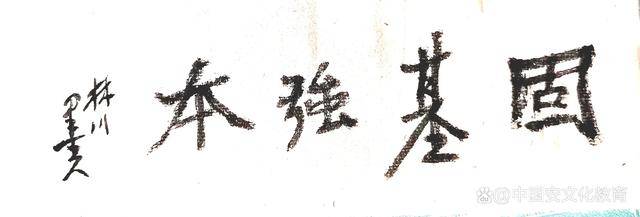 固基強本
林川
墨人
中国安文化教育